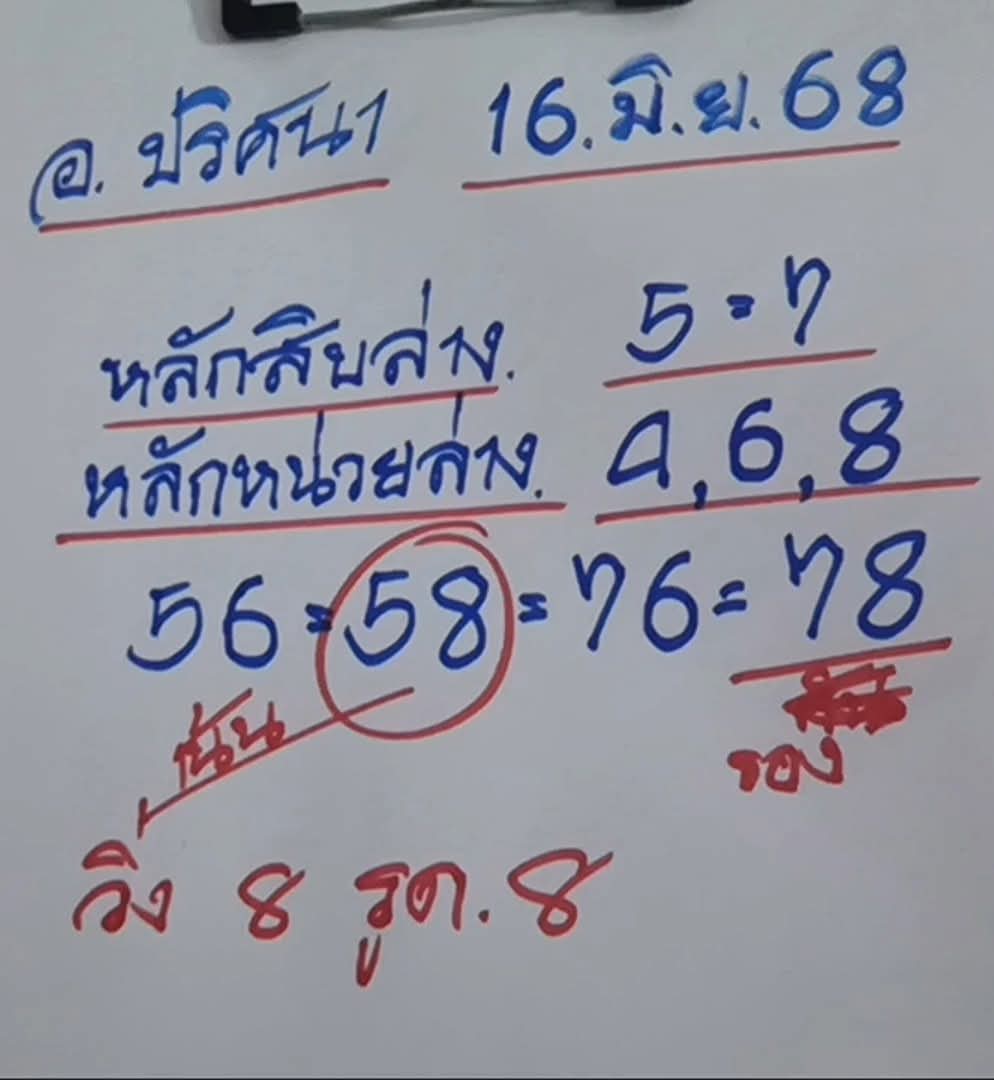 อ. ปริศนา 16. มิ. ย. 68
หลักสิบล่าง. 5 = 7
หลักหน่วยล่าง. 4, 6, 8
56 = 58 = 76 = 78
เน้น
รอง
วิ่ง 8 รูด. 8